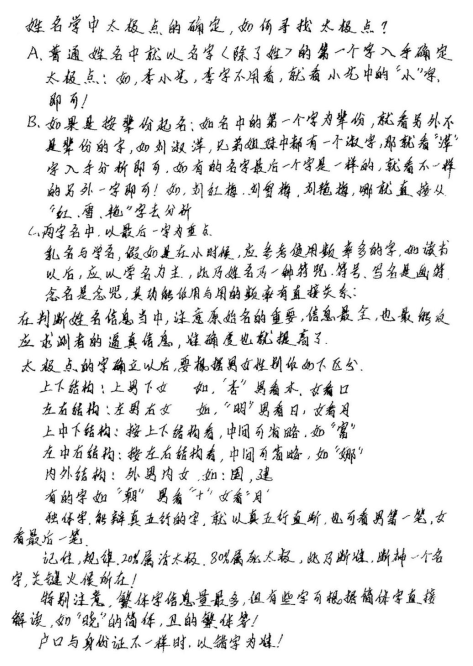 姓名学中太极点的确定，如何寻找太极点？
A、普通姓名中就以名字（除了姓）的第一个字入手确定
太极点：如，李小光，李字不用看，就看小光中的“小”字，
即可！
B、如果是按辈份起名：如名中的第一个字为辈份，就看另外不
是辈份的字，如刘淑洋，兄弟姐妹中都有一个淑字，那就看“洋”
字入手分析即可，如有的名字最后一个字是一样的，就看不一样
的另外一字即可！如，刘红梅、刘雪梅、刘艳梅，哪就直接从
“红、雪、艳”字去分析
C、两字名中，以最后一字为重点
乳名与学名，假如是在小时候，应参考使用频率多的字，如读书
以后，应以学名为主，此乃姓名乃一种符咒、符号、写名是画符，
念名是念咒，其功能作用与用的频率有直接关系：
在判断姓名信息当中，注意原始名的重要，信息最全，也最能反
应求测者的通真信息，准确度也就提高了。
太极点的字确立以后，要根据男女性别作如下区分
上下结构：上男下女 如，“杏”男看木、女看口
左右结构：左男右女 如，“明”男看日，女看月
上中下结构：按上下结构看，中间可省略，如“富”
左中右结构：按左右结构看，中间可省略，如“娜”
内外结构：外男内女 如：国，建
有的字如“朝”男看“十”女看“月”
独体字，能辩真五行的字，就以真五行直断，也可看男第一笔，女
看最后一笔
记住，规律，20%属活太极，80%属死太极，此乃断准，断神一个名
字，关键火候所在！
特别注意，繁体字信息量最多，但有些字可根据简体字直接
解读，如“晓”的简体，且的繁体等！
户口与身份证不一样时，以错字为准！